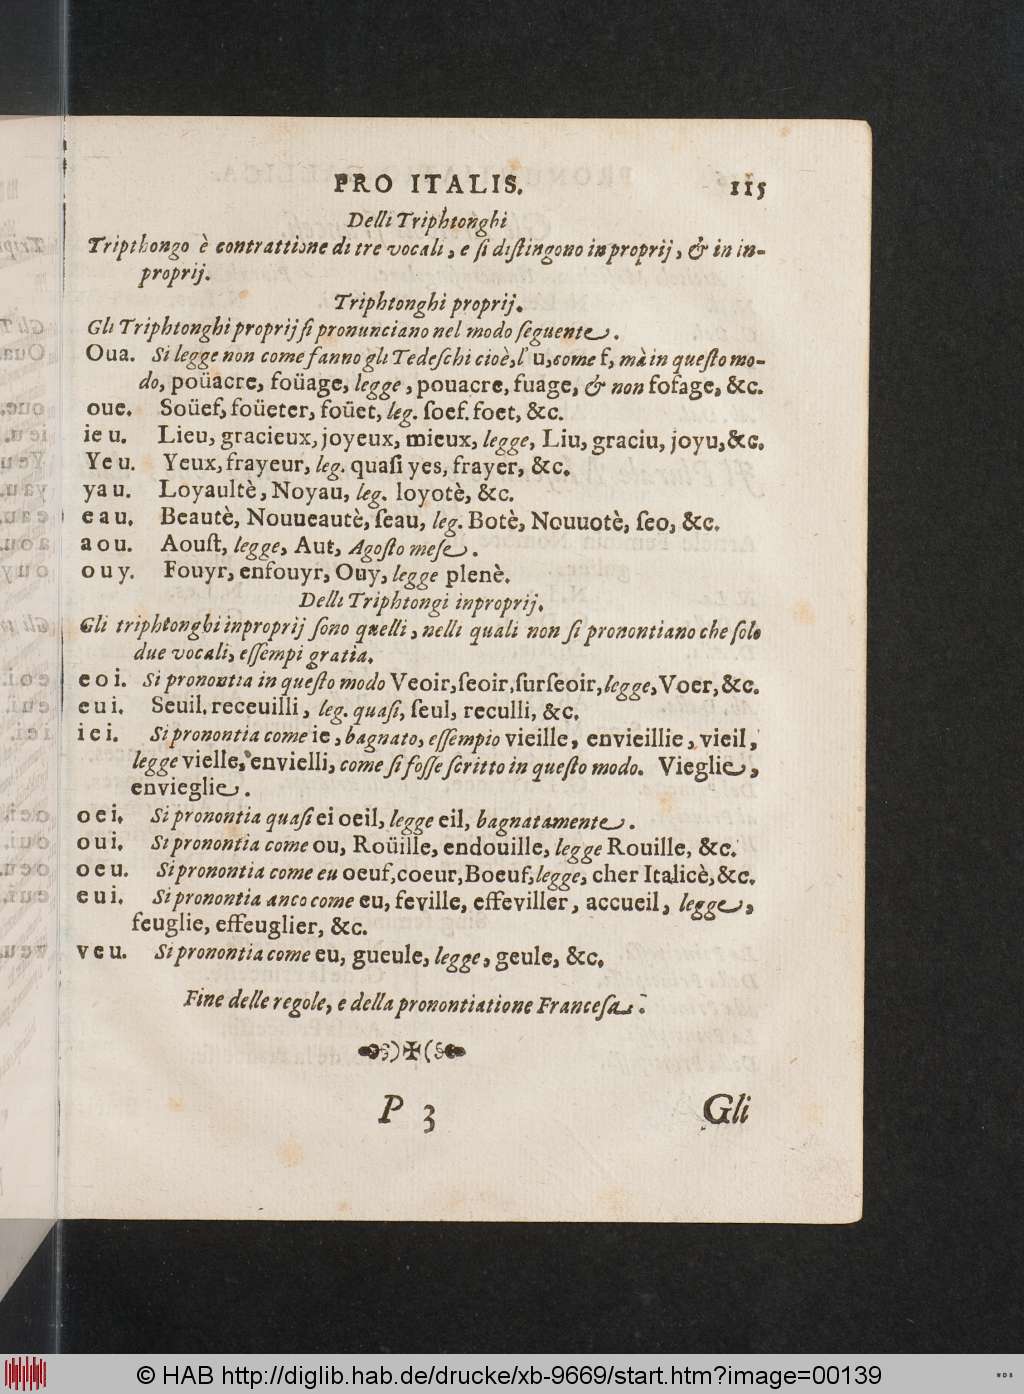 PRO ITALIS. 115
Delli Triphtonghi
Tripthongo è contrattione di tre vocali, e ſi diſtingono in proprij, & in in-
proprij.
Triphtonghi proprij.
Gli Triphtonghi proprij ſi pronunciano nel modo ſeguente.
Oua. Si legge non come fanno gli Tedeſchi cioè, l' u, come f, mà in queſto mo-
do, poüacre, foüage, legge, pouacre, fuage, & non fofage, &c.
oue. Soüef, foüeter, foüet, leg. ſoef. foet, &c.
ieu. Lieu, gracieux, joyeux, mieux, legge, Liu, graciu, joyu, &c.
Yeu. Yeux, frayeur, leg. quaſi yes, frayer, &c.
yau. Loyaultè, Noyau, leg. loyotè, &c.
eau. Beautè, Nouueautè, ſeau, leg. Botè, Nouuotè, ſeo, &c.
aou. Aouſt, legge, Aut, Agoſto meſe.
ouy. Fouyr, enfouyr, Ouy, legge plenè.
Delli Triphtongi inproprij.
Gli triphtonghi inproprij ſono quelli, nelli quali non ſi prononti­ano che ſolo
due vocali, eſſempi gratia.
eoi. Si pronontia in queſto modo Veoir, ſeoir, ſurſeoir, legge, Voer, &c.
eui. Seuil. receuilli, leg. quaſi, ſeul, reculli, &c.
iei. Si pronontia come ie, bagnato, eſſempio vieille, envieillie, vieil,
legge vielle, envielli, come ſi foſſe ſcritto in queſto modo. Vieglie,
envieglie.
oei. Si pronontia quaſi ei oeil, legge eil, bagnatamente.
oui. Si pronontia come ou, Roüille, endouille, legge Rouille, &c.
oeu. Si pronontia come eu oeuf, coeur, Boeuf, legge, cher Italicè, &c.
eui. Si pronontia anco come eu, feville, effeviller, accueil, legge,
feuglie, effeuglier, &c.
veu. Si pronontia come eu, gueule, legge, geule, &c.
Fine delle regole, e della pronontiatione Franceſa.
P 3 Gli
© HAB http://diglib.hab.de/drucke/xb-9669/start.htm?image=00139